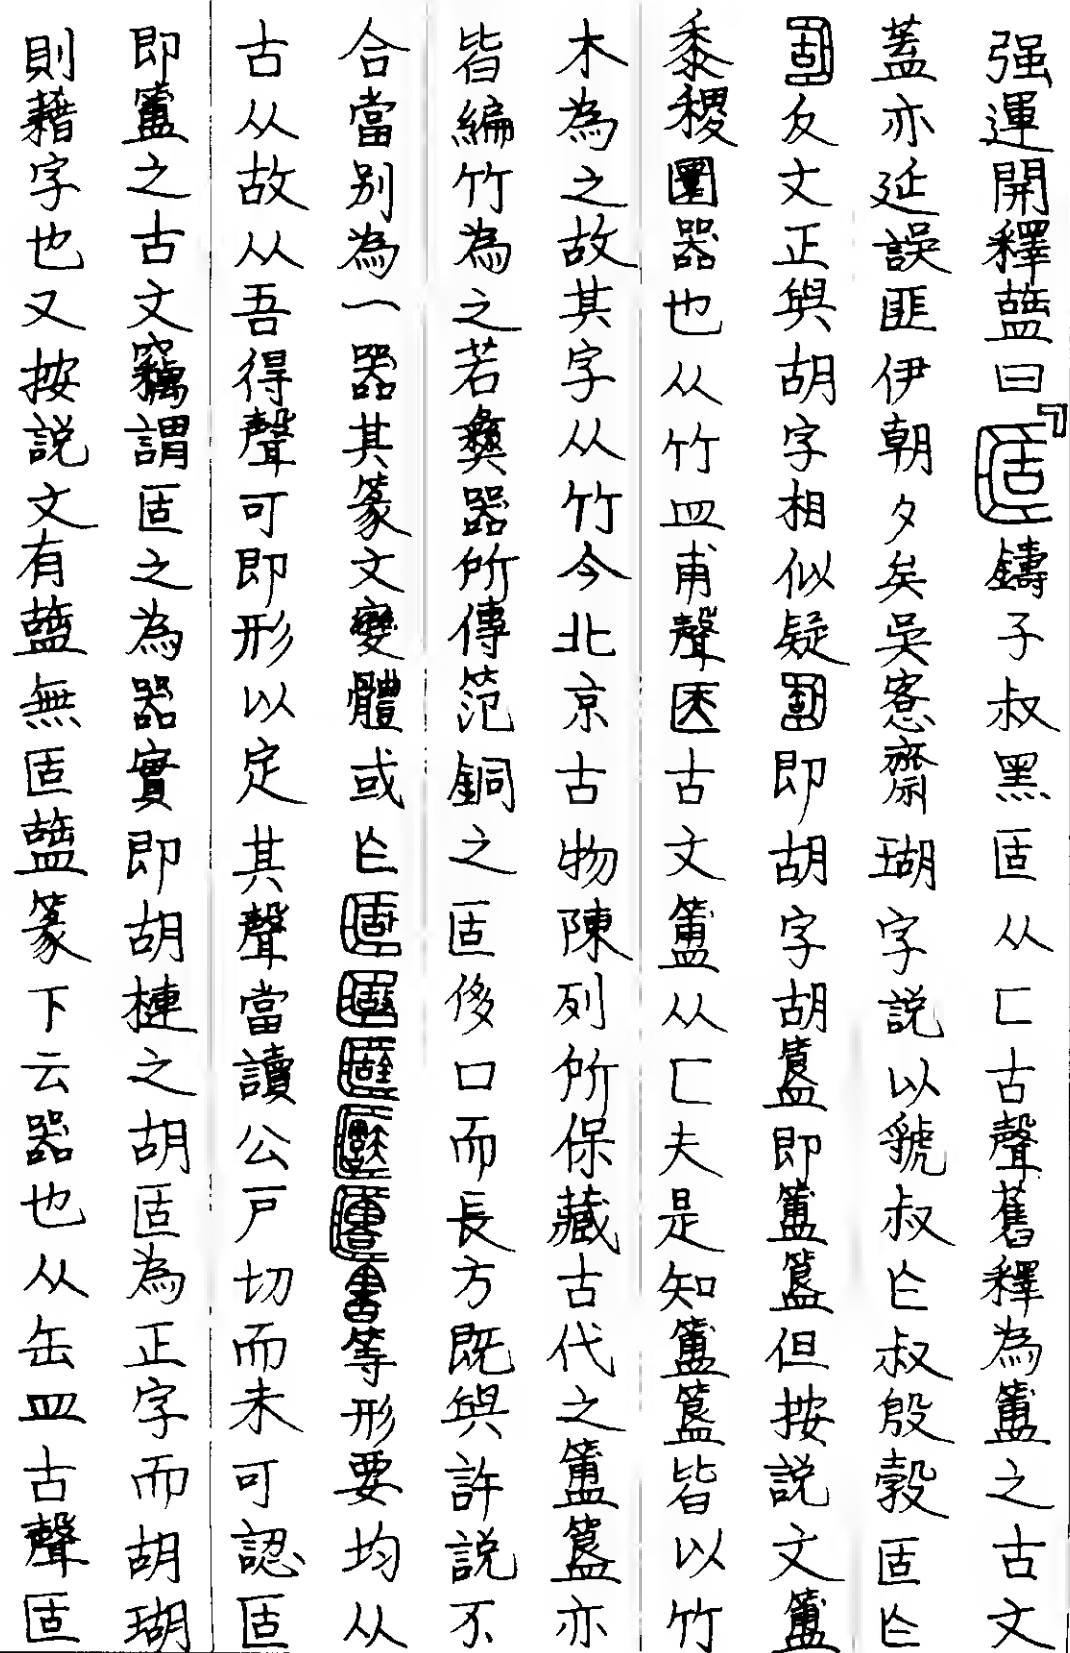 强運開釋盬曰鑄子叔黑𠤳从匚古聲舊釋為簠之古文
蓋亦延誤匪伊朝夕矣吳愙齋瑚字說以虢叔匕叔殷穀𠤳匕
反文正與胡字相似疑即胡字胡簋即簠簋但按説文簠
黍稷圜器也从竹皿甫聲医古文簠从匚夫是知簠簋皆以竹
木為之故其字从竹今北京古物陳列所保藏古代之簠簋亦
皆編竹為之若彝器所傳范銅之𠤳侈口而長方既與許說不
合當別為一器其篆文變體或𠤎等形要均从
古从故从吾得聲可即形以定其聲當讀公戶切而未可認𠤳
即簠之古文竊謂𠤳之為器實即胡槤之胡𠤳為正字而胡瑚
則藉字也又按説文有盬無𠤳盬篆下云器也从缶皿古聲𠤳